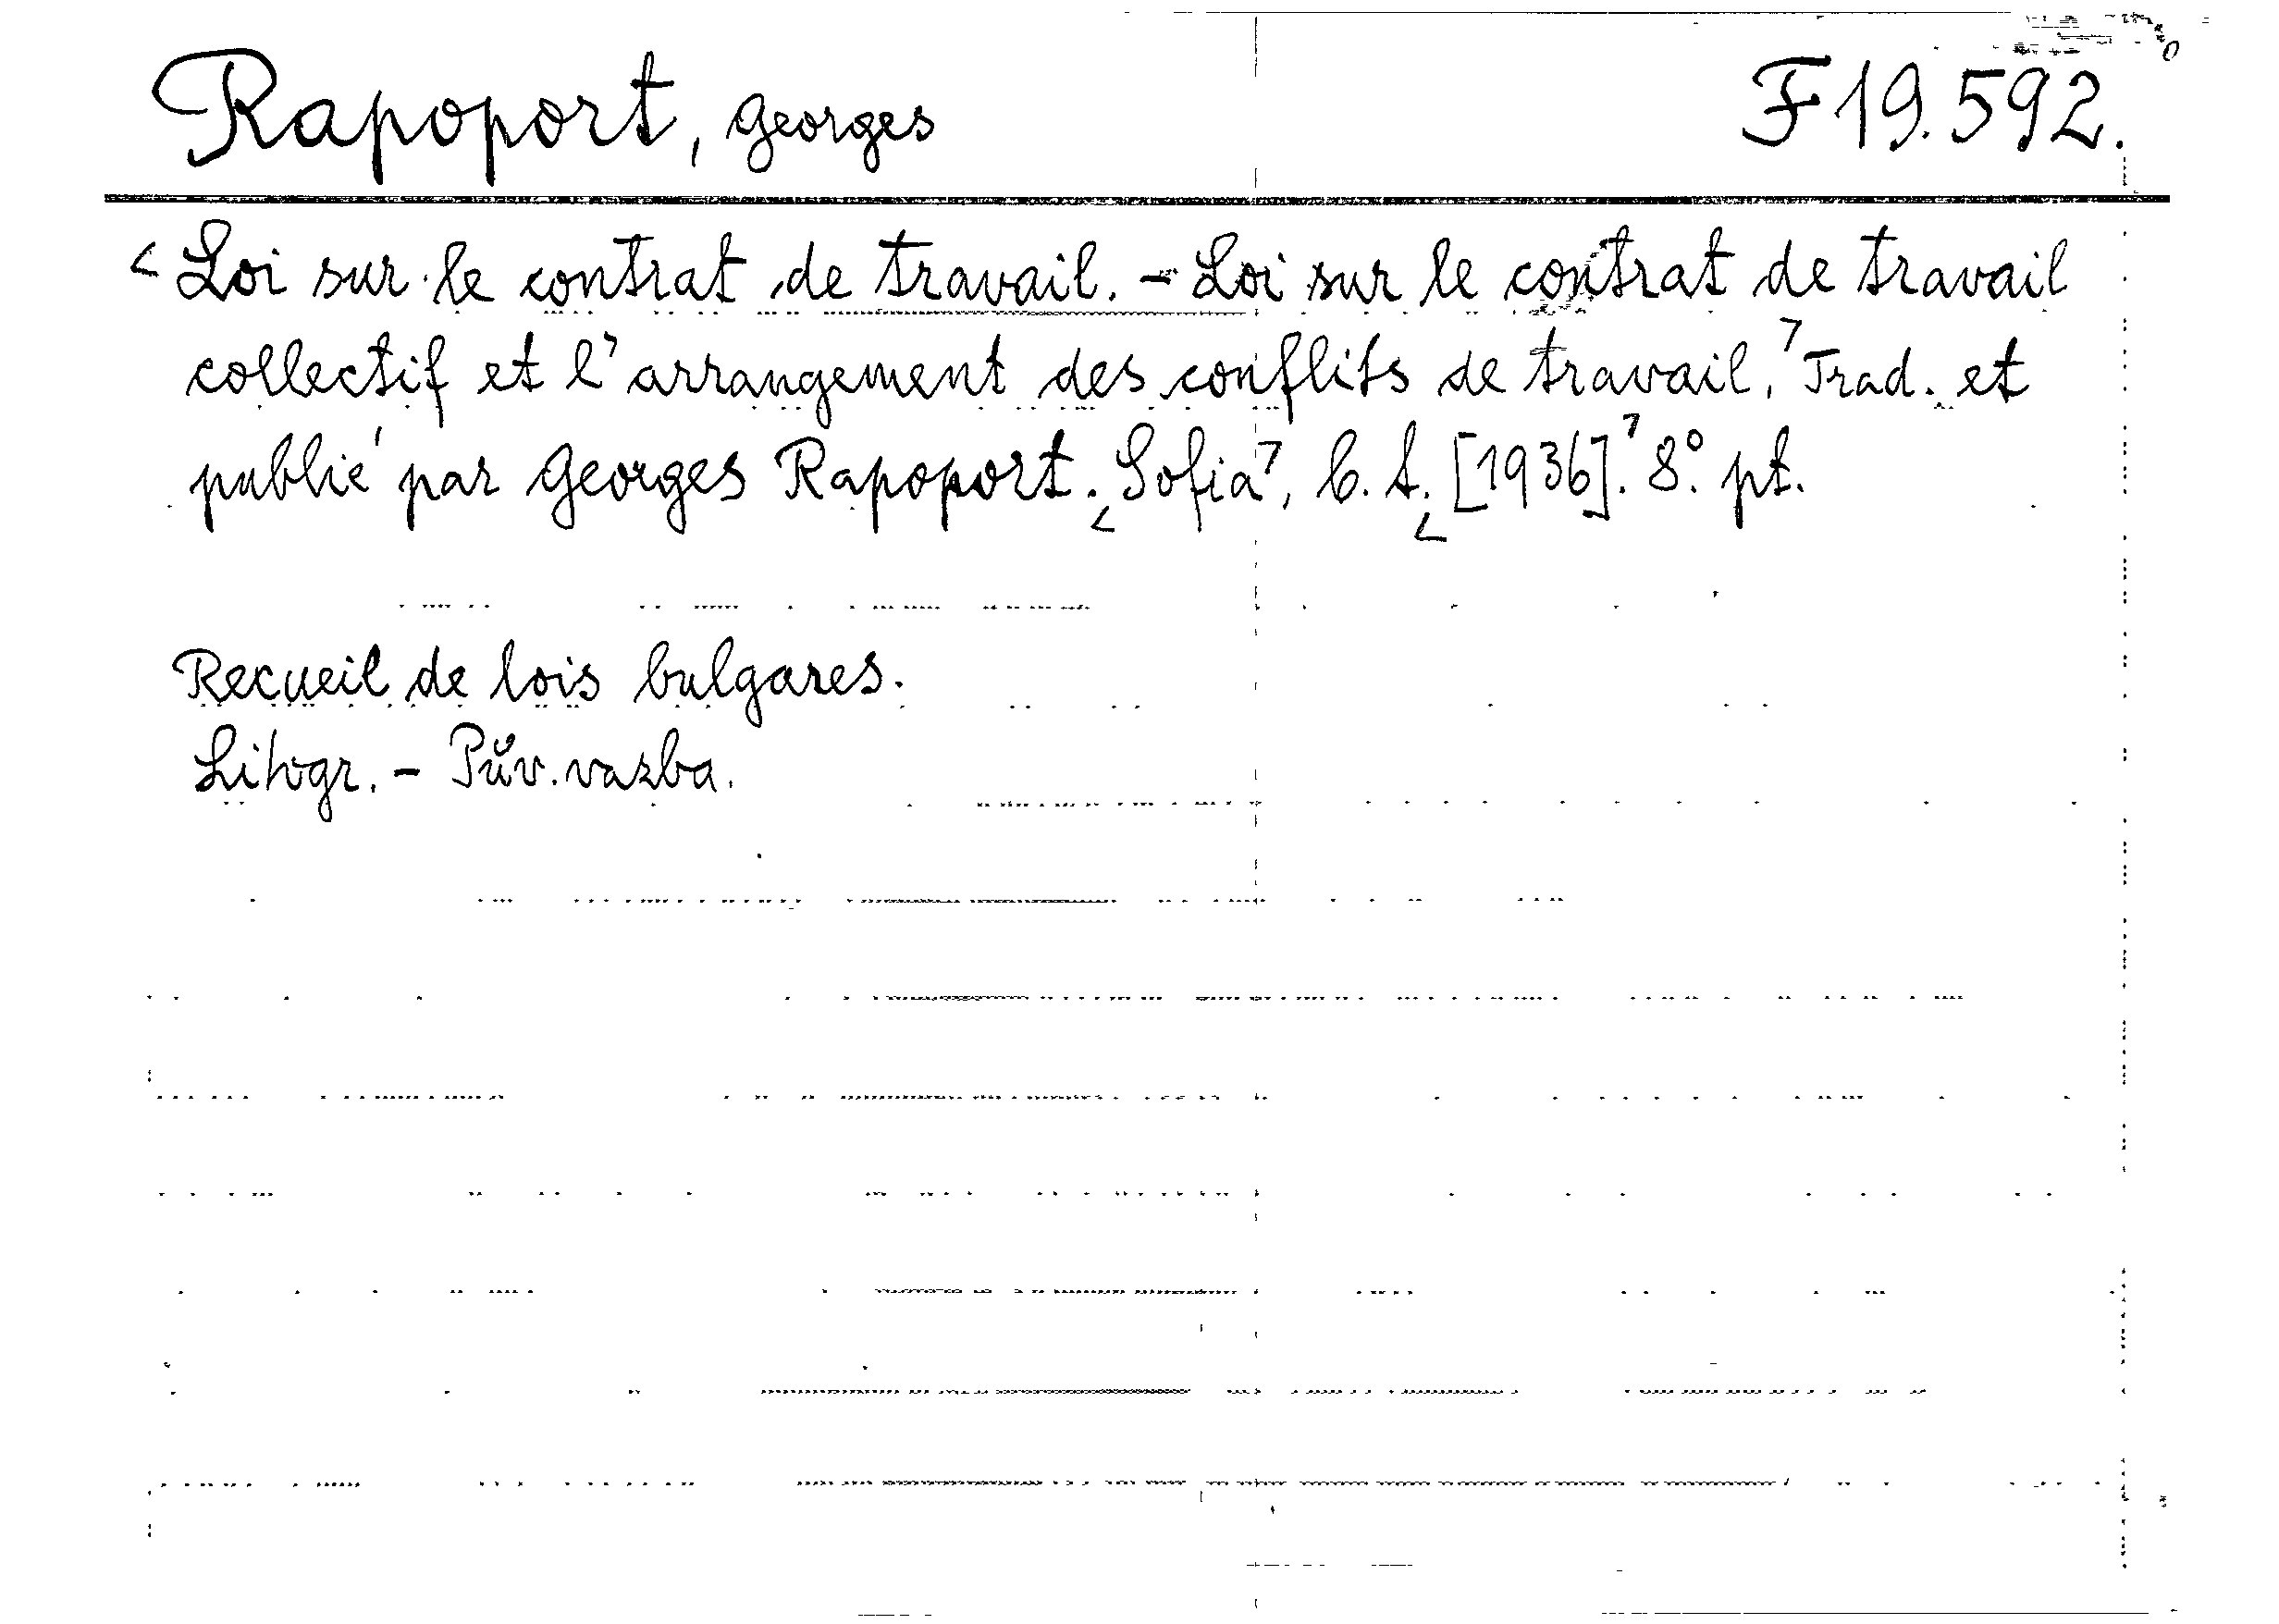 Rapoport, Georges
F 19.592.
<Loi sur le contrat de travail. - Loi sur le contrat de travail
collectif et l'arrangement des conflits de travail.> Trad. et
publié par Georges Rapoport. <Sofia>, b. t. <[1936].> 8°. pt.
Recueil de lois bulgares.
Lithogr. - Pův. vazba.